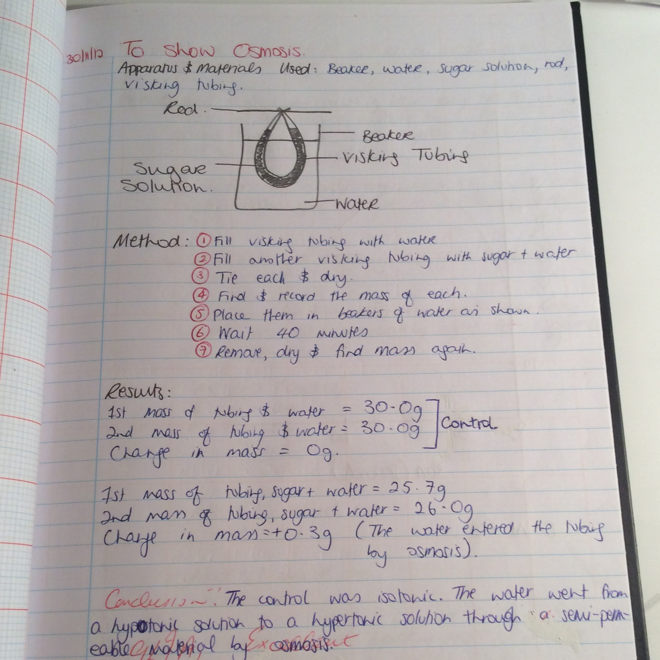 30/11/12 To Show Osmosis.
Apparatus & Materials Used: Beaker, water, sugar solution, rod,
visking tubing.
Rod
Beaker
Visking Tubing
Sugar
Solution.
Water
Method: ① Fill visking tubing with water
② Fill another visking tubing with sugar + water
③ Tie each & dry.
④ Find & record the mass of each.
⑤ Place them in beakers of water as shown.
⑥ Wait 40 minutes
⑦ Remove, dry & find mass again.
Results:
1st mass of tubing & water = 30.0g
2nd mass of tubing & water = 30.0g
Control
Change in mass = 0g.
1st mass of tubing, sugar + water = 25.7g
2nd mass of tubing, sugar + water = 26.0g
Change in mass = +0.3g (The water entered the tubing
by osmosis).
Conclusion: The control was isotonic. The water went from
a hypotonic solution to a hypertonic solution through a semi-perm-
eable material by osmosis.